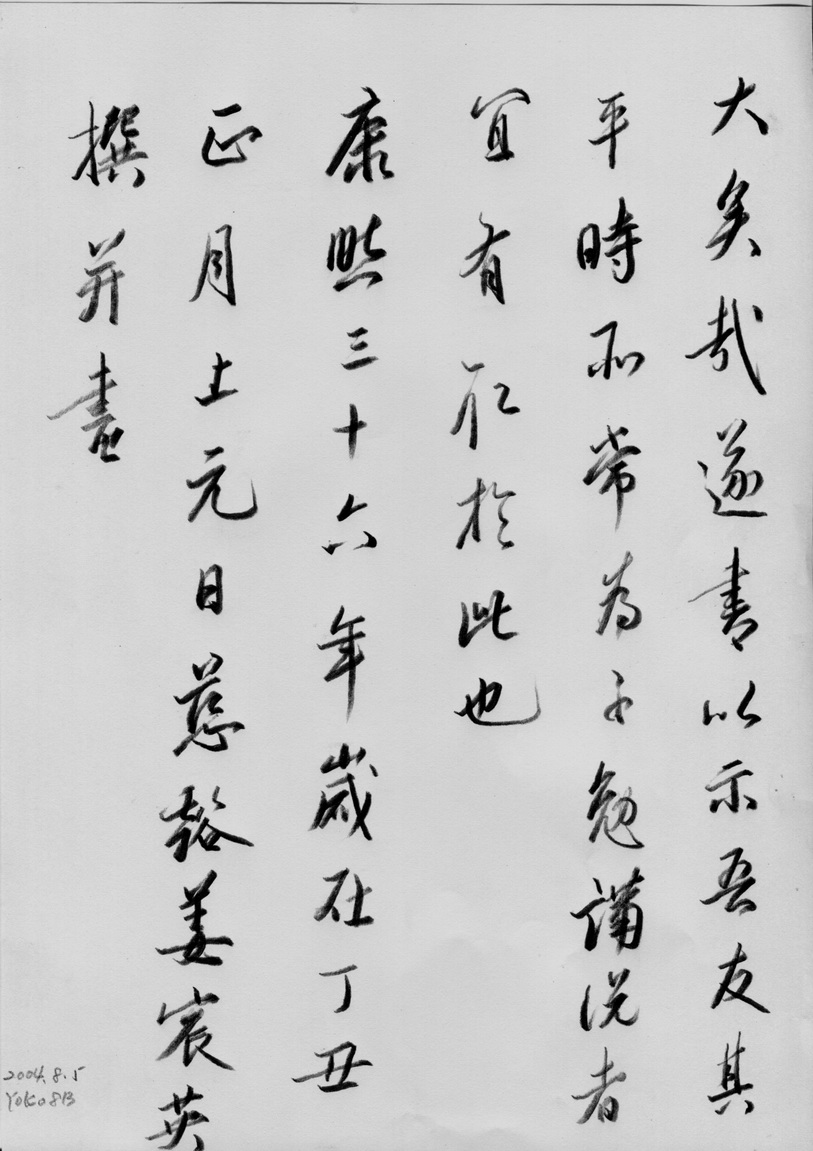 大矣哉遂書以示吾友其
平時所常為子勉講說者
宜有取於此也
康熙三十六年歲在丁丑
正月上元日慈谿姜宸英
撰并書
2004.8.5